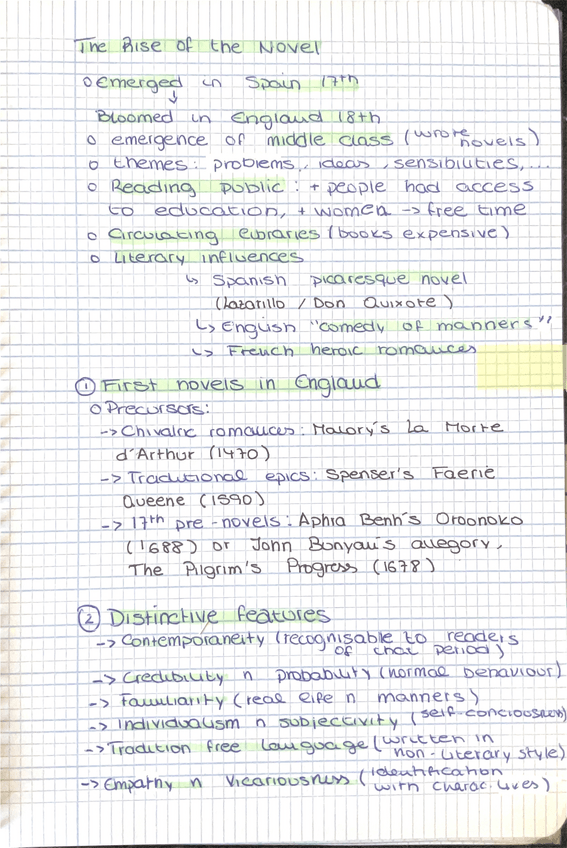 The Rise of the Novel
o Emerged in Spain 17th
↓
Bloomed in England 18th
o emergence of middle class (wrote novels)
o themes: problems, ideas, sensibilities,...
o Reading public: + people had access
to education, + women -> free time
o Circulating libraries (books expensive)
o Literary influences
↳ Spanish picaresque novel
(Lazarillo / Don Quixote)
↳ English "comedy of manners"
↳ French heroic romances
① First novels in England
o Precursors:
-> Chivalric romances: Malory's La Morte
d'Arthur (1470)
-> Traditional epics: Spenser's Faerie
Queene (1590)
-> 17th pre-novels: Aphra Behn's Oroonoko
(1688) or John Bunyan's allegory,
The Pilgrim's Progress (1678)
② Distinctive features
-> Contemporaneity (recognisable to readers
of that period)
-> Credibility n probability (normal behaviour)
-> Familiarity (real life n manners)
-> Individualism n subjectivity (self-conciousness)
-> Tradition free language (written in
non-literary style)
-> Empathy n vicariousness (identification
with charac. lives)